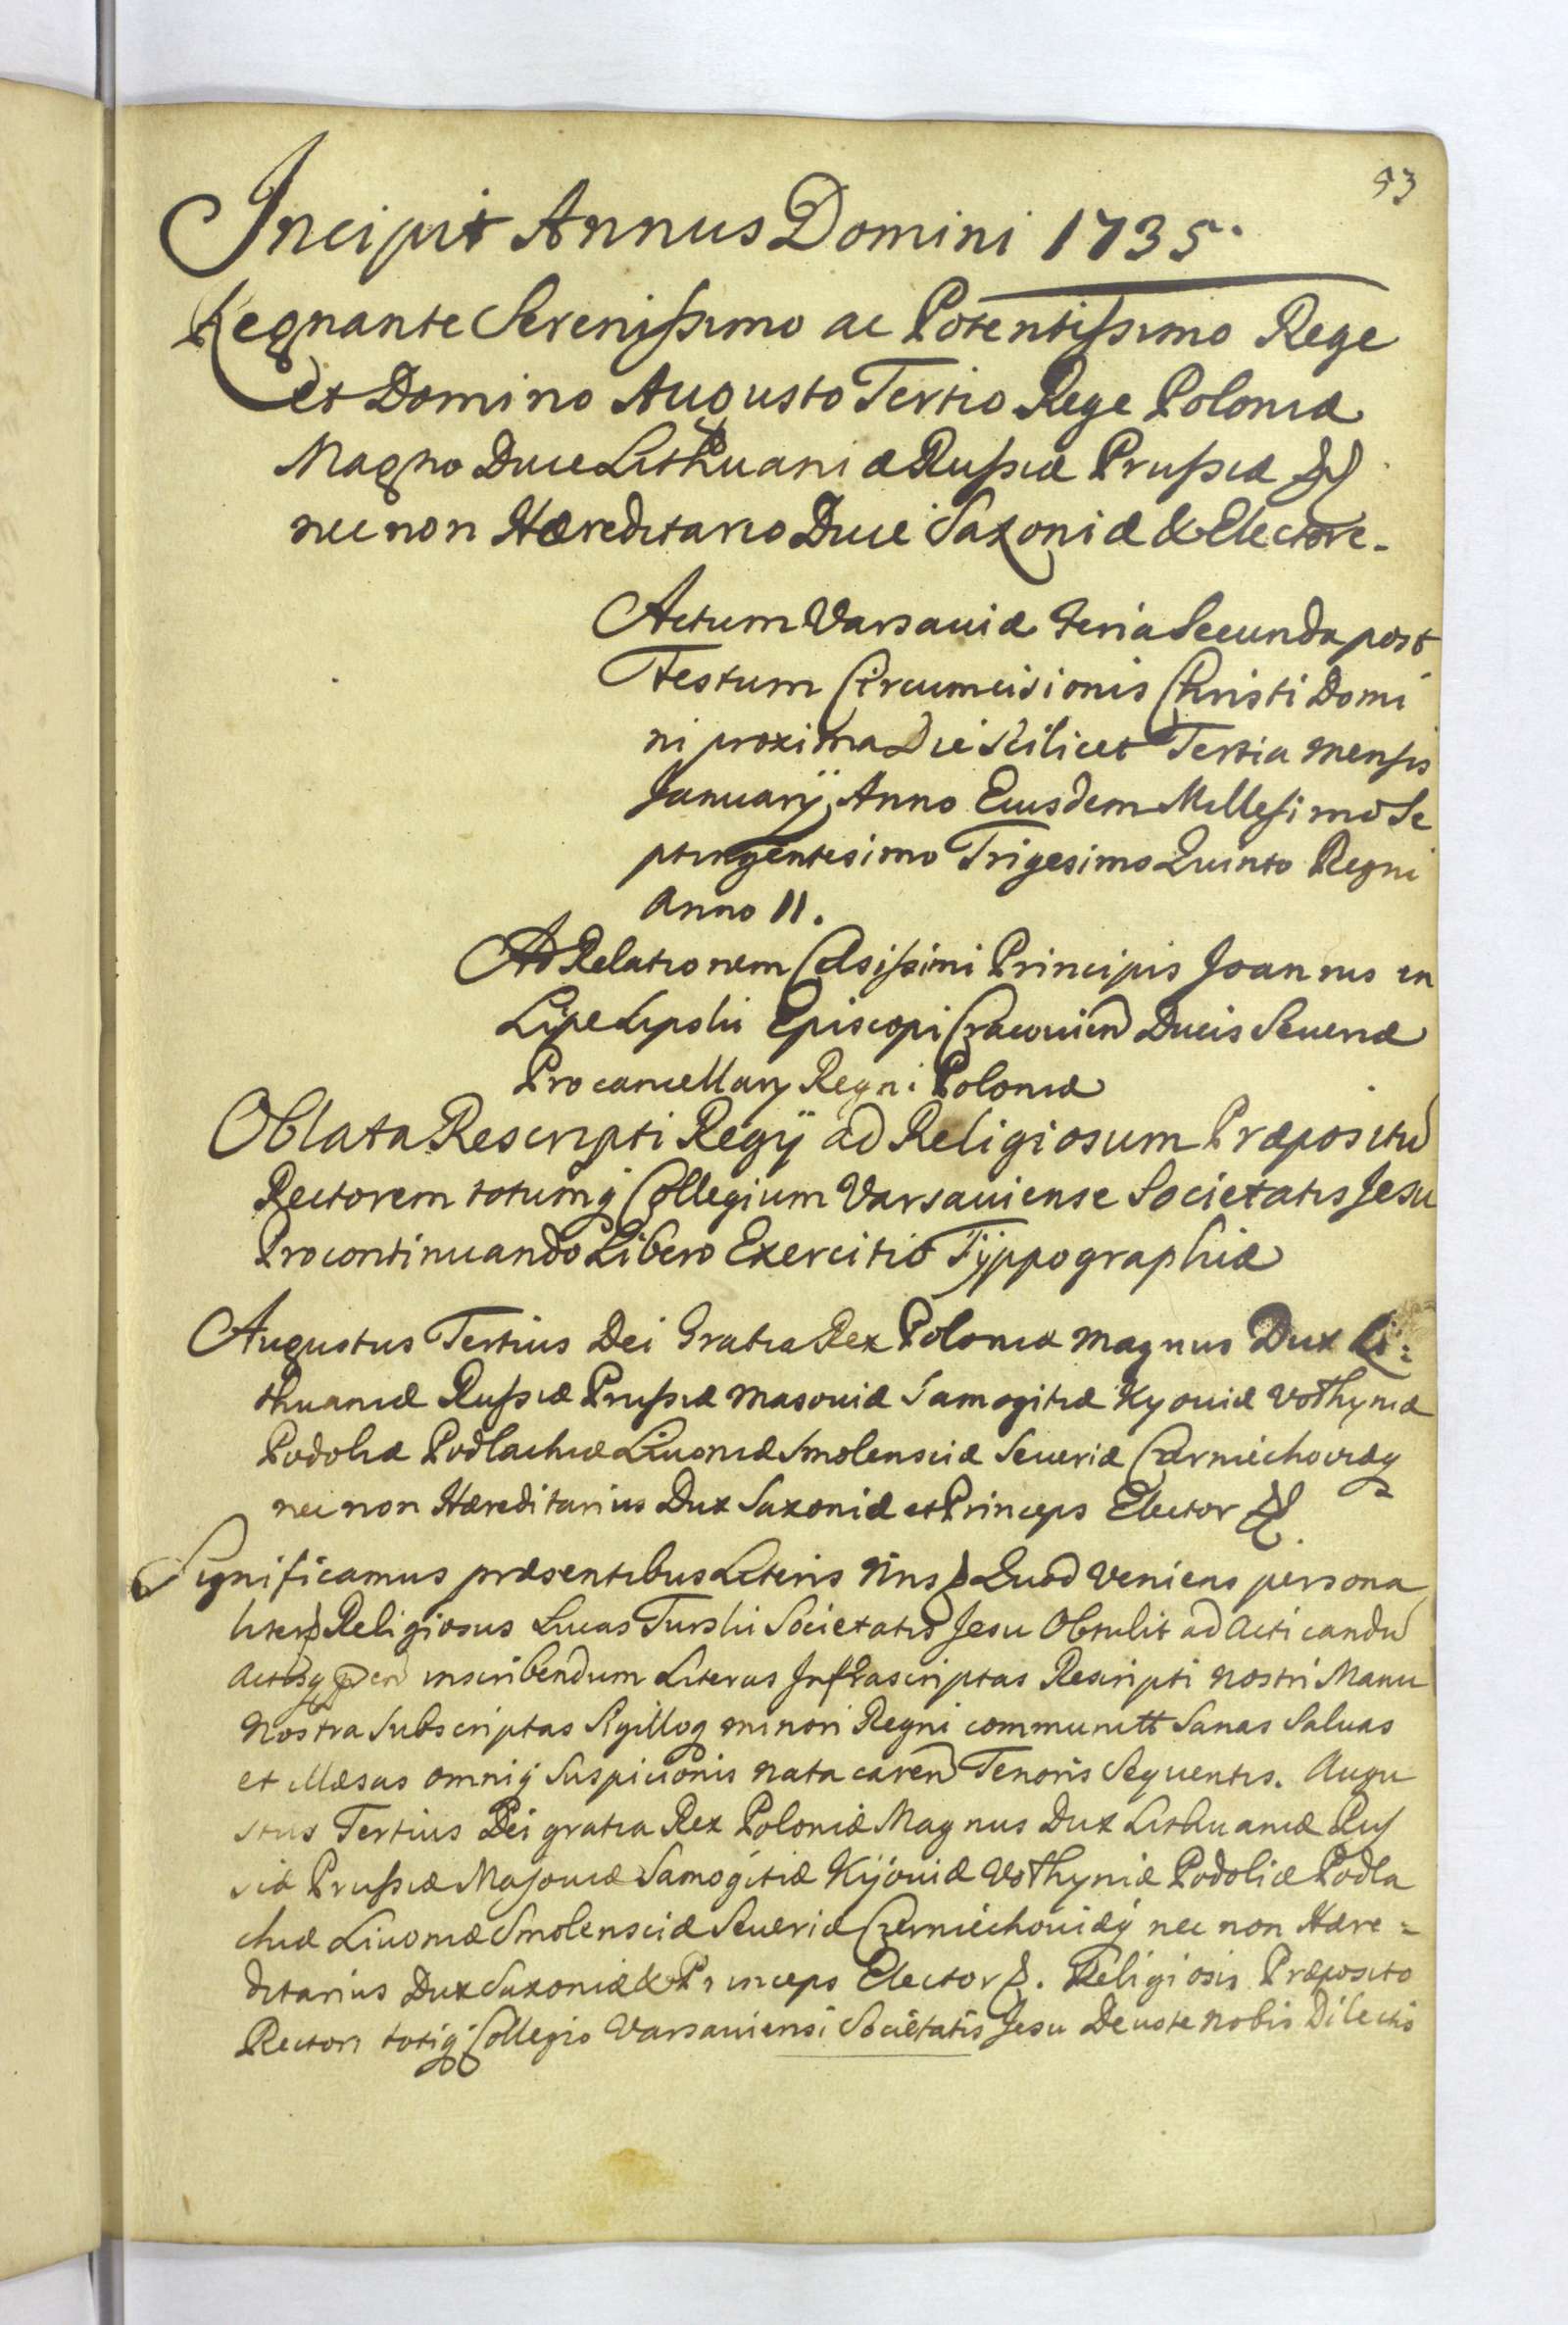 53
Incipit Annus Domini 1735.
Regnante Serenissimo ac Potentissimo Rege
et Domino Augusto Tertio Rege Poloniæ
Magno Duce Lithuaniæ Russiæ Prussiæ &
nec non Hæreditario Duce Saxoniæ & Electore.
Actum Varsaviæ Feria Secunda post
Festum Circumcisionis Christi Domi
ni proxima Die scilicet Tertia mensis
Januarÿ Anno Eiusdem Millesimo Se
ptingentesimo Trigesimo Quinto Regni
Anno II.
Ad Relationem Celsissimi Principis Joannis in
Lipe Lipski Episcopi Cracovien Ducis Severiæ
Procancellarÿ Regni Poloniæ
Oblata Rescripti Regÿ ad Religiosum Præpositu
Rectorem totumq Collegium Varsauiense Societatis Jesu
Pro continuando Libero Exercitio Tÿppographiæ
Augustus Tertius Dei Gratia Rex Poloniæ Magnus Dux Li:
thuaniæ Russiæ Prussiæ Masouiæ Samogitiæ Kyouiæ Volhyniæ
Podoliæ Podlachiæ Liuoniæ Smolensciæ Seueriæ Czerniechoviæq
nec non Hæreditarius Dux Saxoniæ et Princeps Elector &
Significamus præsentibus Literis Nris Quod veniens persona
liter Religiosus Lucas Turski Societatis Jesu Obtulit ad acticandu
actisq pen inscribendum Literas Infrascriptas Rescripti nostri Manu
Nostra Subscriptas Sigilloq minori Regni communitt Sanas Saluas
et illæsas omniq Suspicionis nata caren Tenoris Sequentis. Augu
stus Tertius Dei gratia Rex Poloniæ Magnus Dux Lithuaniæ Rus
siæ Prussiæ Masouiæ Samogitiæ Kijouiæ Volhyniæ Podoliæ Podla
chiæ Liuoniæ Smolensciæ Seueriæ Czerniechouiæq nec non Hære=
ditarius Dux Saxoniæ & Princeps Elector &. Religiosis Præposito
Rectori totiq Collegio Varsauiensi Societatis Jesu Deuote nobis Dilectis